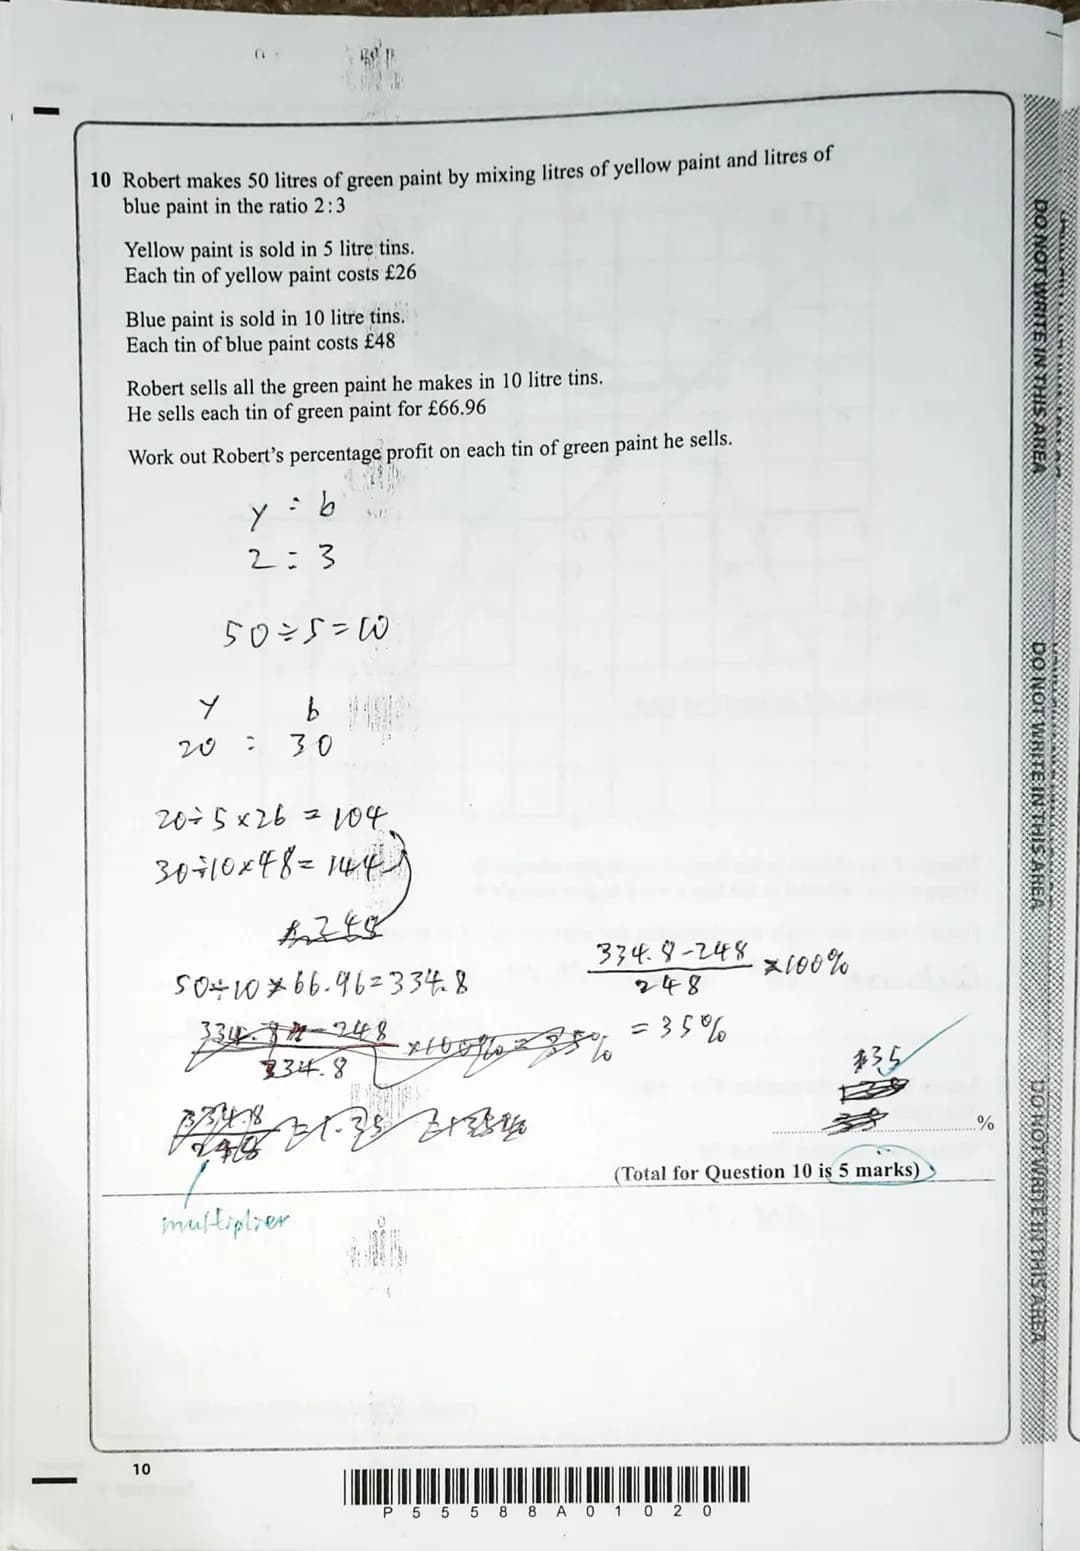 10 Robert makes 50 litres of green paint by mixing litres of yellow paint and litres of
blue paint in the ratio 2:3
Yellow paint is sold in 5 litre tins.
Each tin of yellow paint costs £26
Blue paint is sold in 10 litre tins.
Each tin of blue paint costs £48
Robert sells all the green paint he makes in 10 litre tins.
He sells each tin of green paint for £66.96
Work out Robert's percentage profit on each tin of green paint he sells.
y : b
2 : 3
50÷5=10
y b
20 : 30
20÷5×26 = 104
30÷10×48= 144
248
50÷10×66.96=334.8
334.8-248
334.8
×100%=35%
334.8
248
=1.35
multiplier
334.8-248
248
×100%
=35%
35
%
(Total for Question 10 is 5 marks)
10
P55588A01020
DO NOT WRITE IN THIS AREA
DO NOT WRITE IN THIS AREA
DO NOT WRITE IN THIS AREA